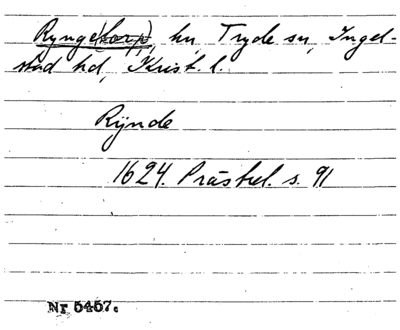 Rynge(torp), hn, Tryde sn, Ingel-
stad hd, Krist. l.
Rÿnde
1624. Prästrel. s. 91
Nr 5457.